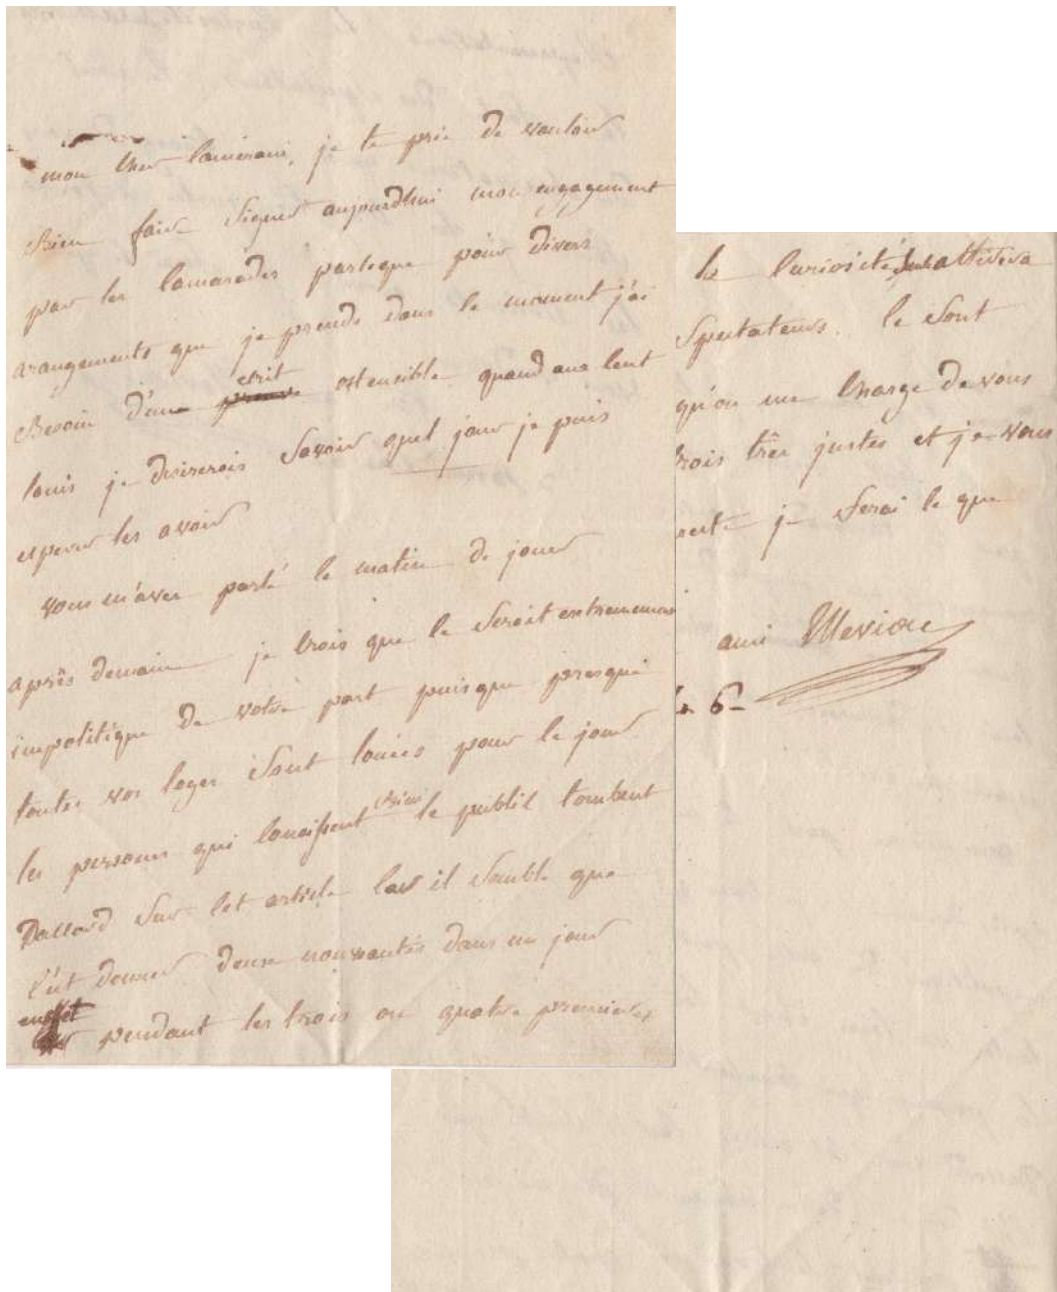 mon cher camerani, je te prie de vouloir
Bien faire signer aujourdhui mon engagement
par les Camarades parseque pour divers
arangements que je prends dans le moment j'ai
Besoin d'un ecrit ostensible quand aux cent
louis je desirerois savoir quel jour je puis
esperer les avoir
vous m'avez parlé ce matin de jouer
après demain je crois que ce seroit extremement
impolitique de votre part puisque presque
toutes vos loges sont louées pour ce jour
les personnes qui conoissent bien le public tombent
Daccord sur cet article car il semble que
c'est donner deux nouvautés dans un jour
en effet pendant les trois ou quatre premieres
la curiosité seule attirera
spectateurs. ce sont
qu'on me charge de vous
crois très justes et je vous
je serai ce que
ami Elleviou
6